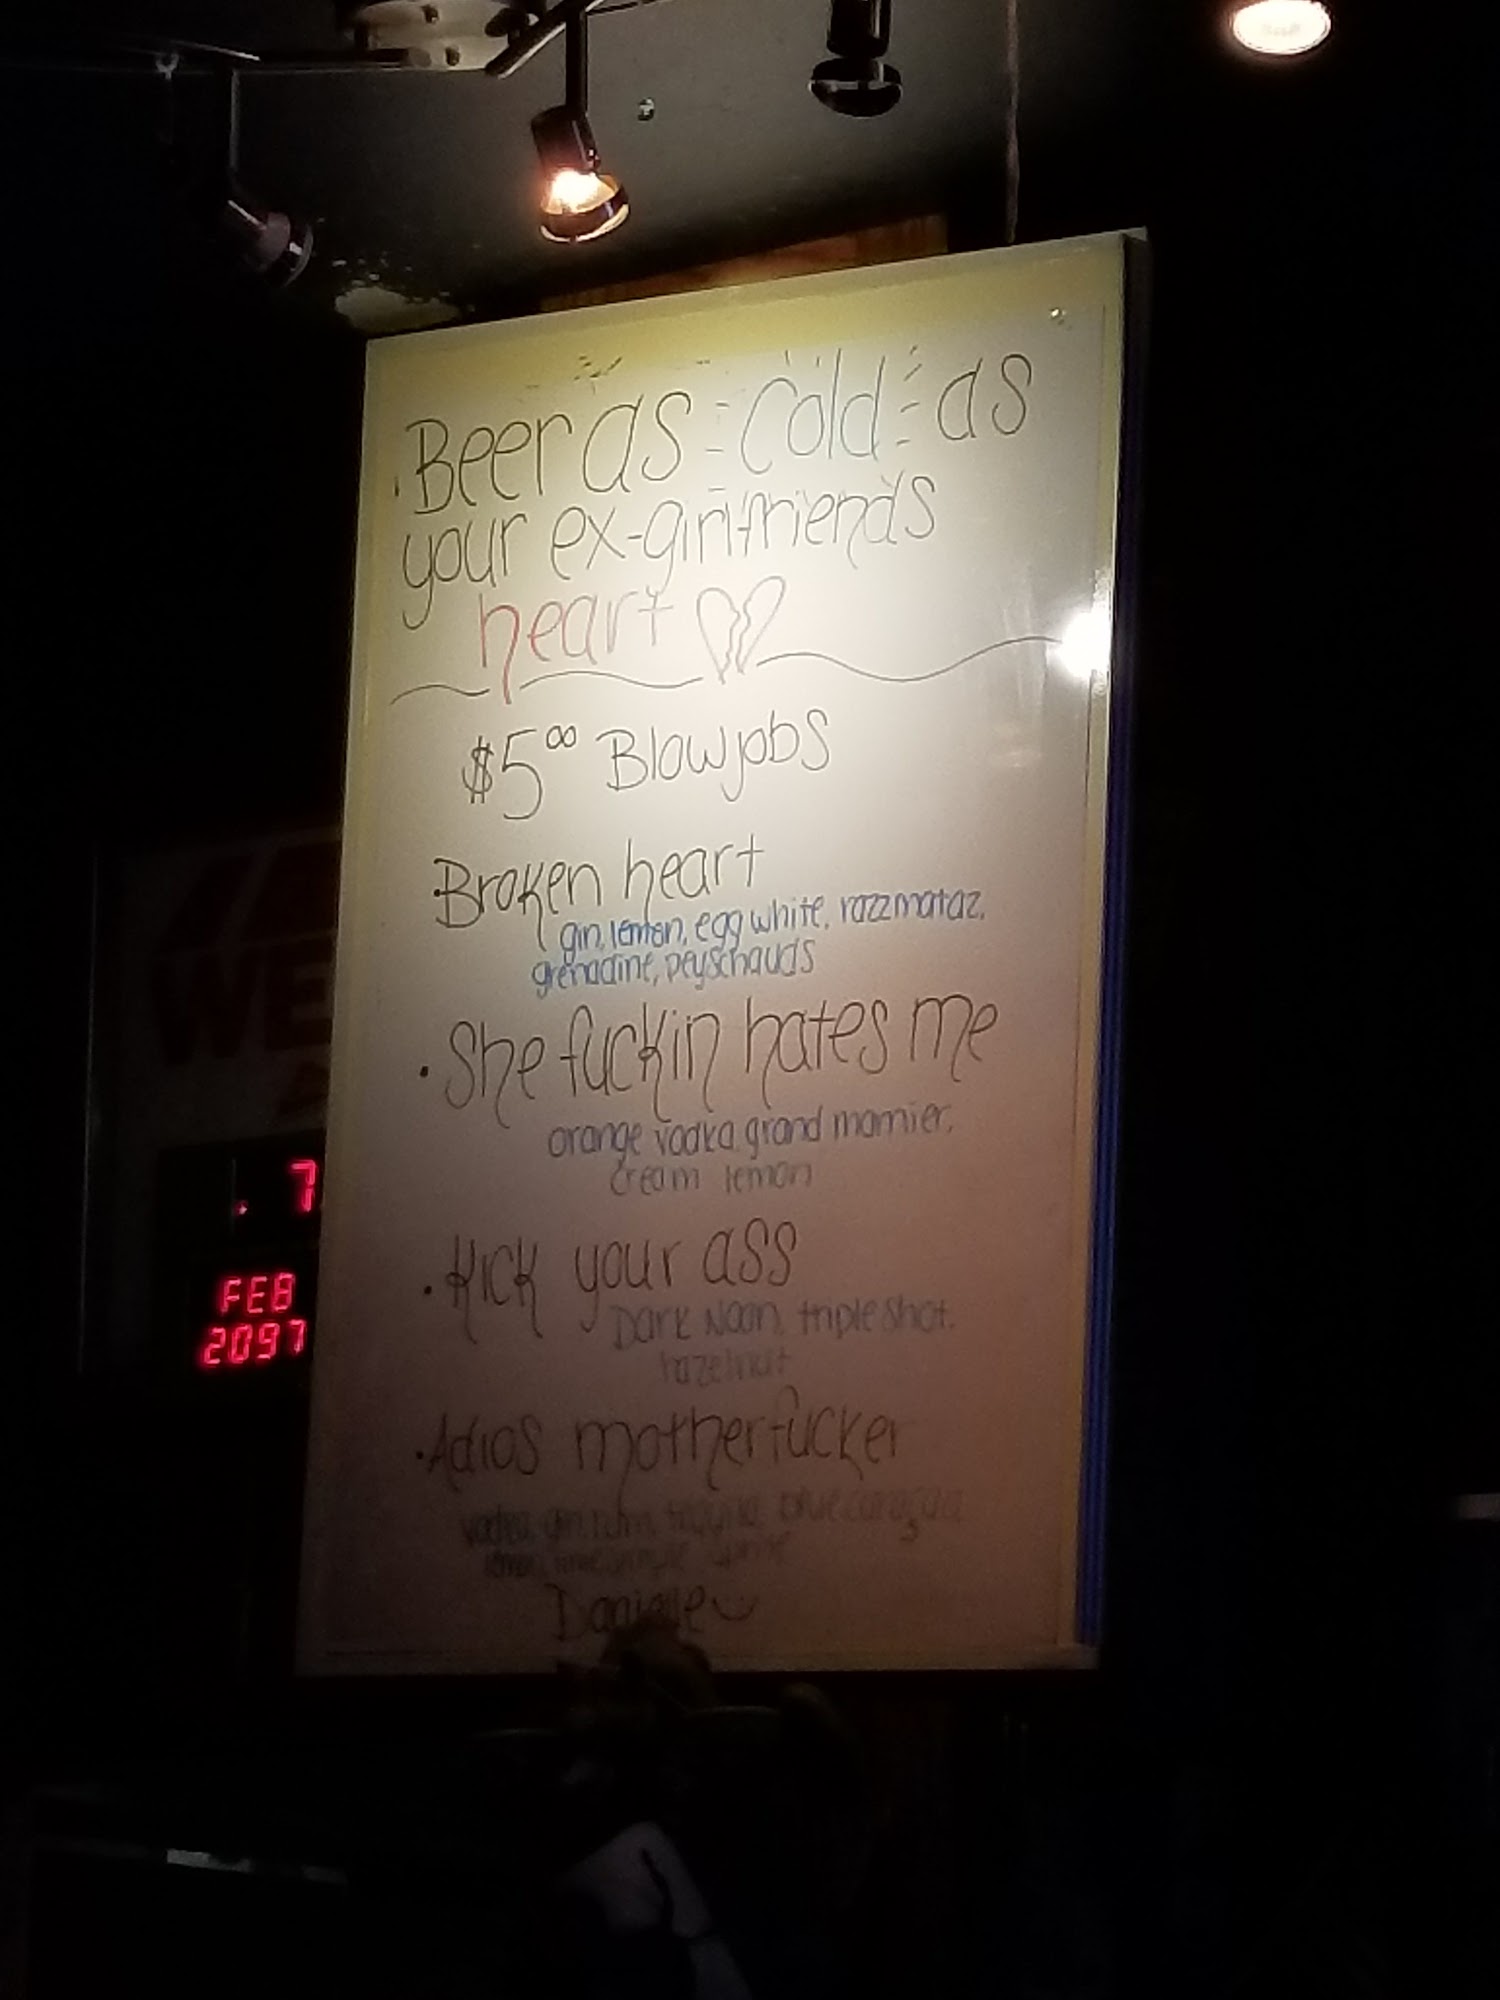 Beer as cold as
your ex-girlfriends
heart
$5⁰⁰ Blowjobs
Broken heart
gin, lemon, egg white, razzmataz,
grenadine, peyschauds
She fuckin hates me
orange vodka, grand marnier,
cream lemon
Kick your ass
Dark Noon, triple shot,
hazelnut
Adios motherfucker
vodka, gin, rum, tequila, blue curaçao
Danielle
WE
7
FEB
2097